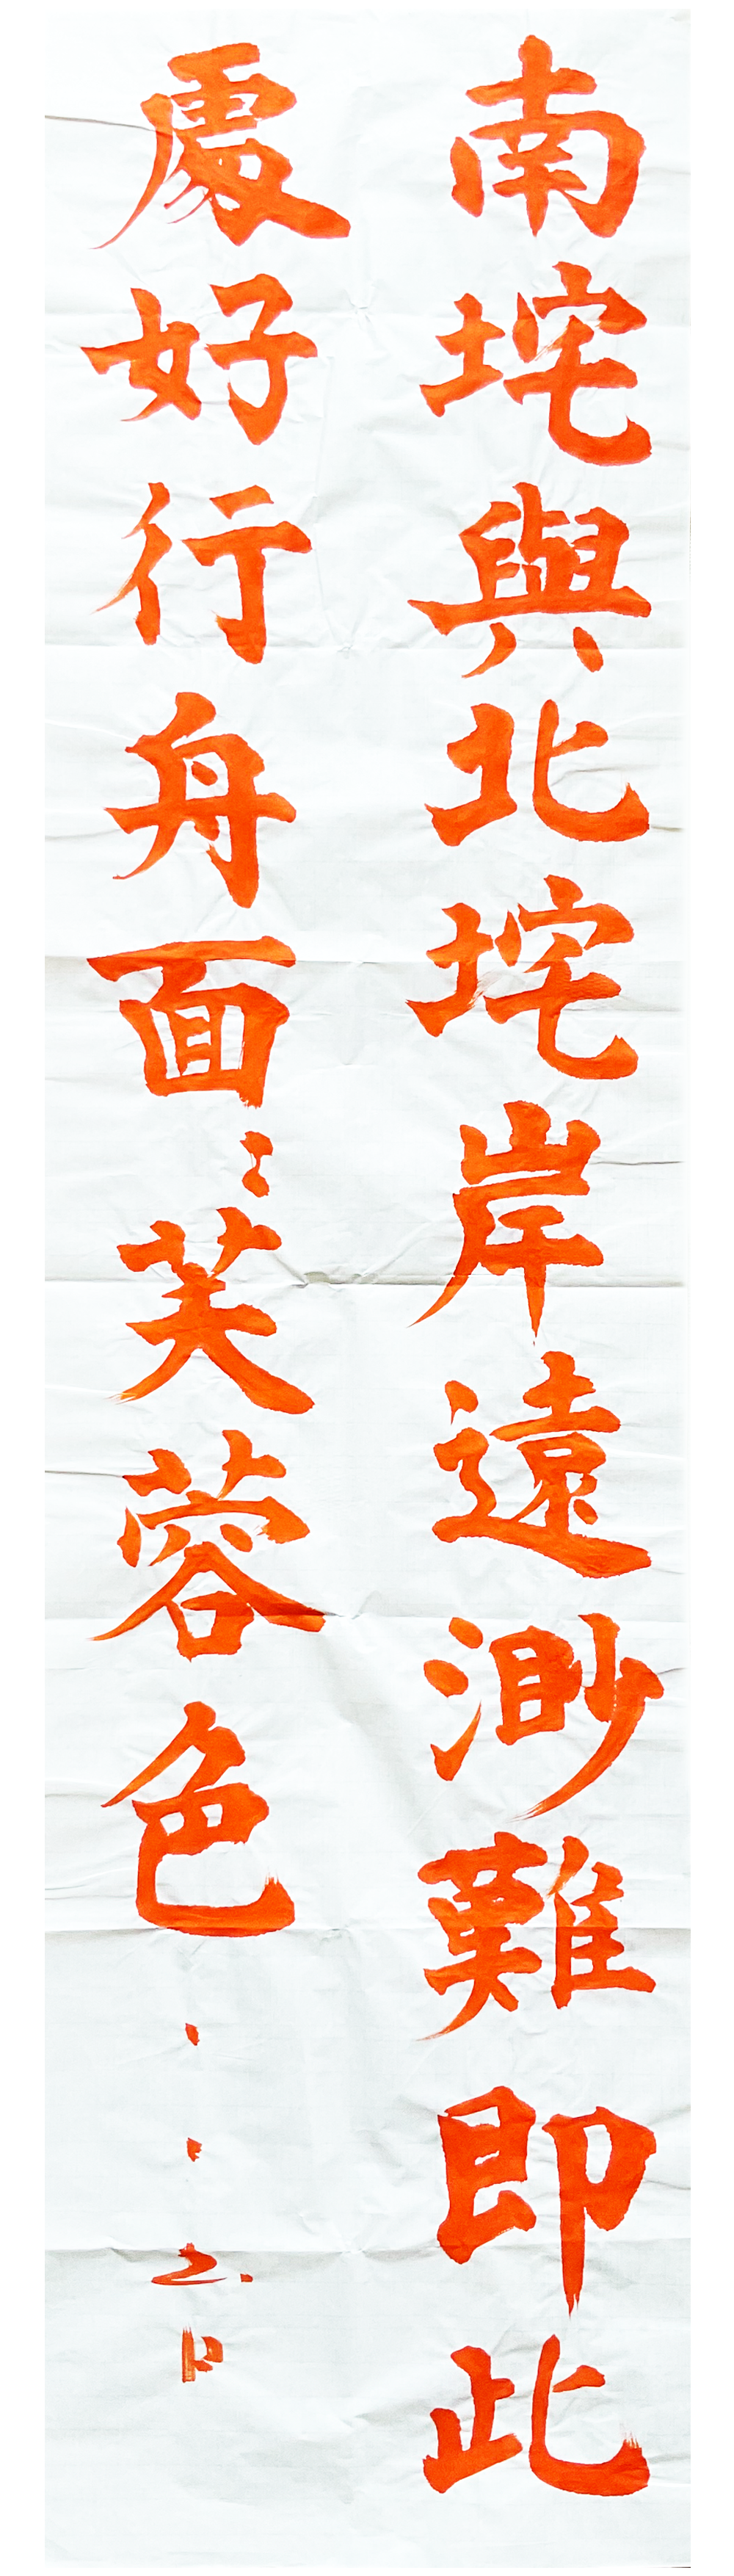 南垞與北垞岸遠渺難即此
處好行舟面〻芙蓉色